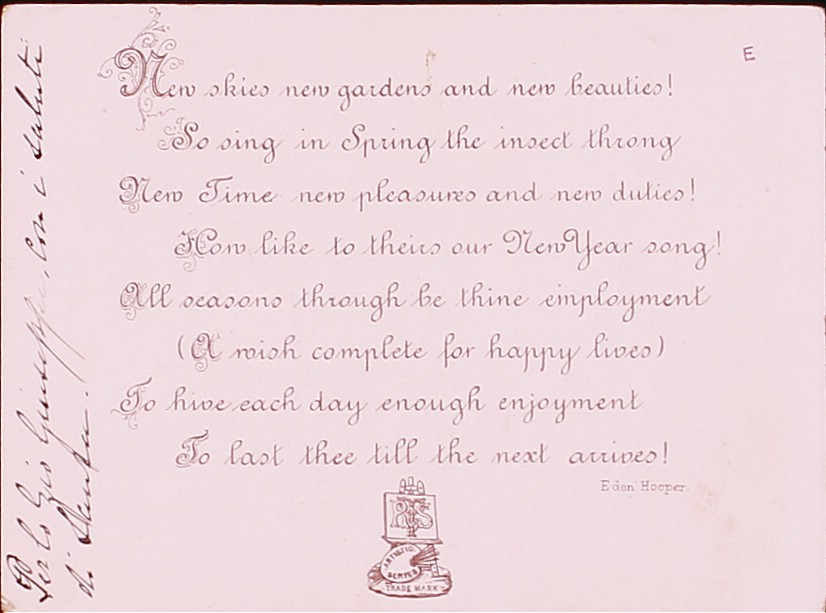 E
New skies new gardens and new beauties!
So sing in Spring the insect throng
New Time new pleasures and new duties!
How like to theirs our New Year song!
All seasons through be thine employment
(A wish complete for happy lives)
To hive each day enough enjoyment
To last thee till the next arrives!
Eden Hooper.
RTS
ARTISTIC
SERIES
TRADE MARK
Per lo Zio Giuseppe, con i saluti
di